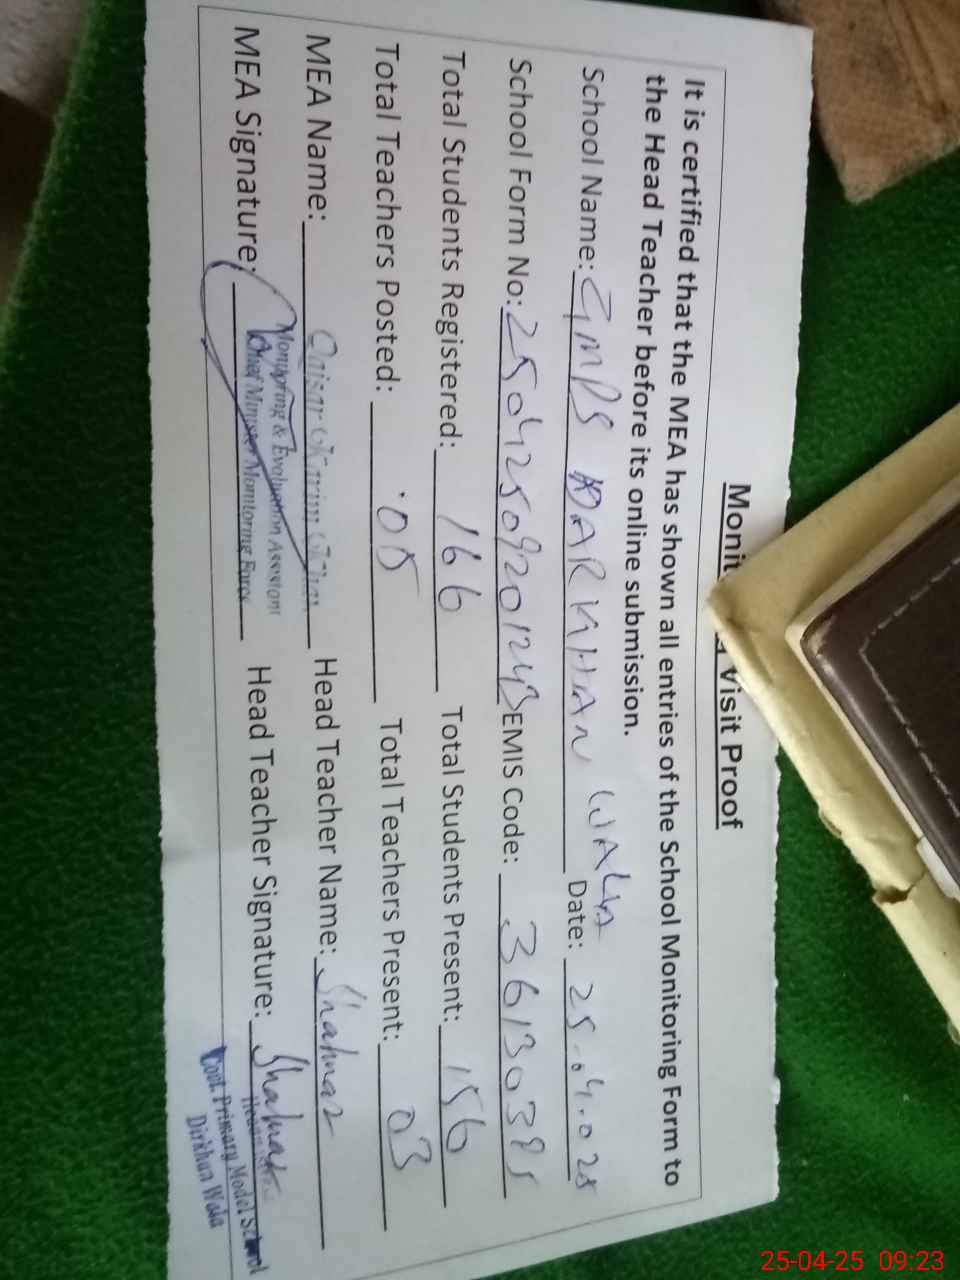 Visit Proof
It is certified that the MEA has shown all entries of the School Monitoring Form to
the Head Teacher before its online submission.
School Name: GMPS DARKHAN WALA Date: 25.04.025
School Form No: EMIS Code:
Total Students Registered: 166 Total Students Present: 156
Total Teachers Posted: 05 Total Teachers Present: 03
MEA Name: Qaisar Karim Khan Head Teacher Name: Shahnaz
Monitoring & Evaluation Assistant
MEA Signature: Chief Minister Monitoring Force Head Teacher Signature: Shahnaz
Govt. Primary Model School
Dirkhan Wala
25-04-25 09:23